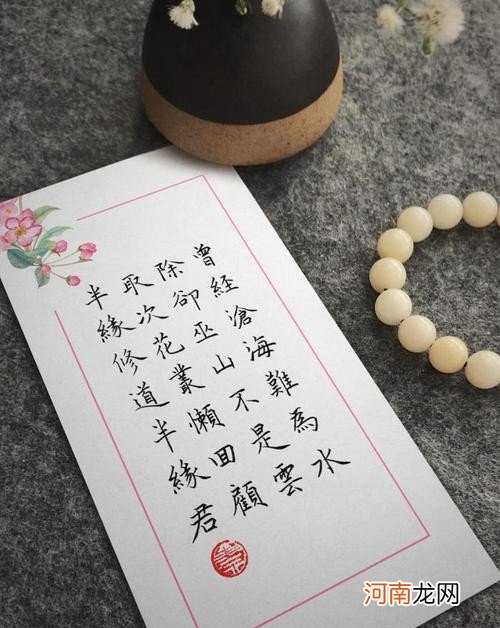 曾経滄海難為水
除卻巫山不是雲
取次花叢懶回顧
半緣修道半緣君
河南龙网